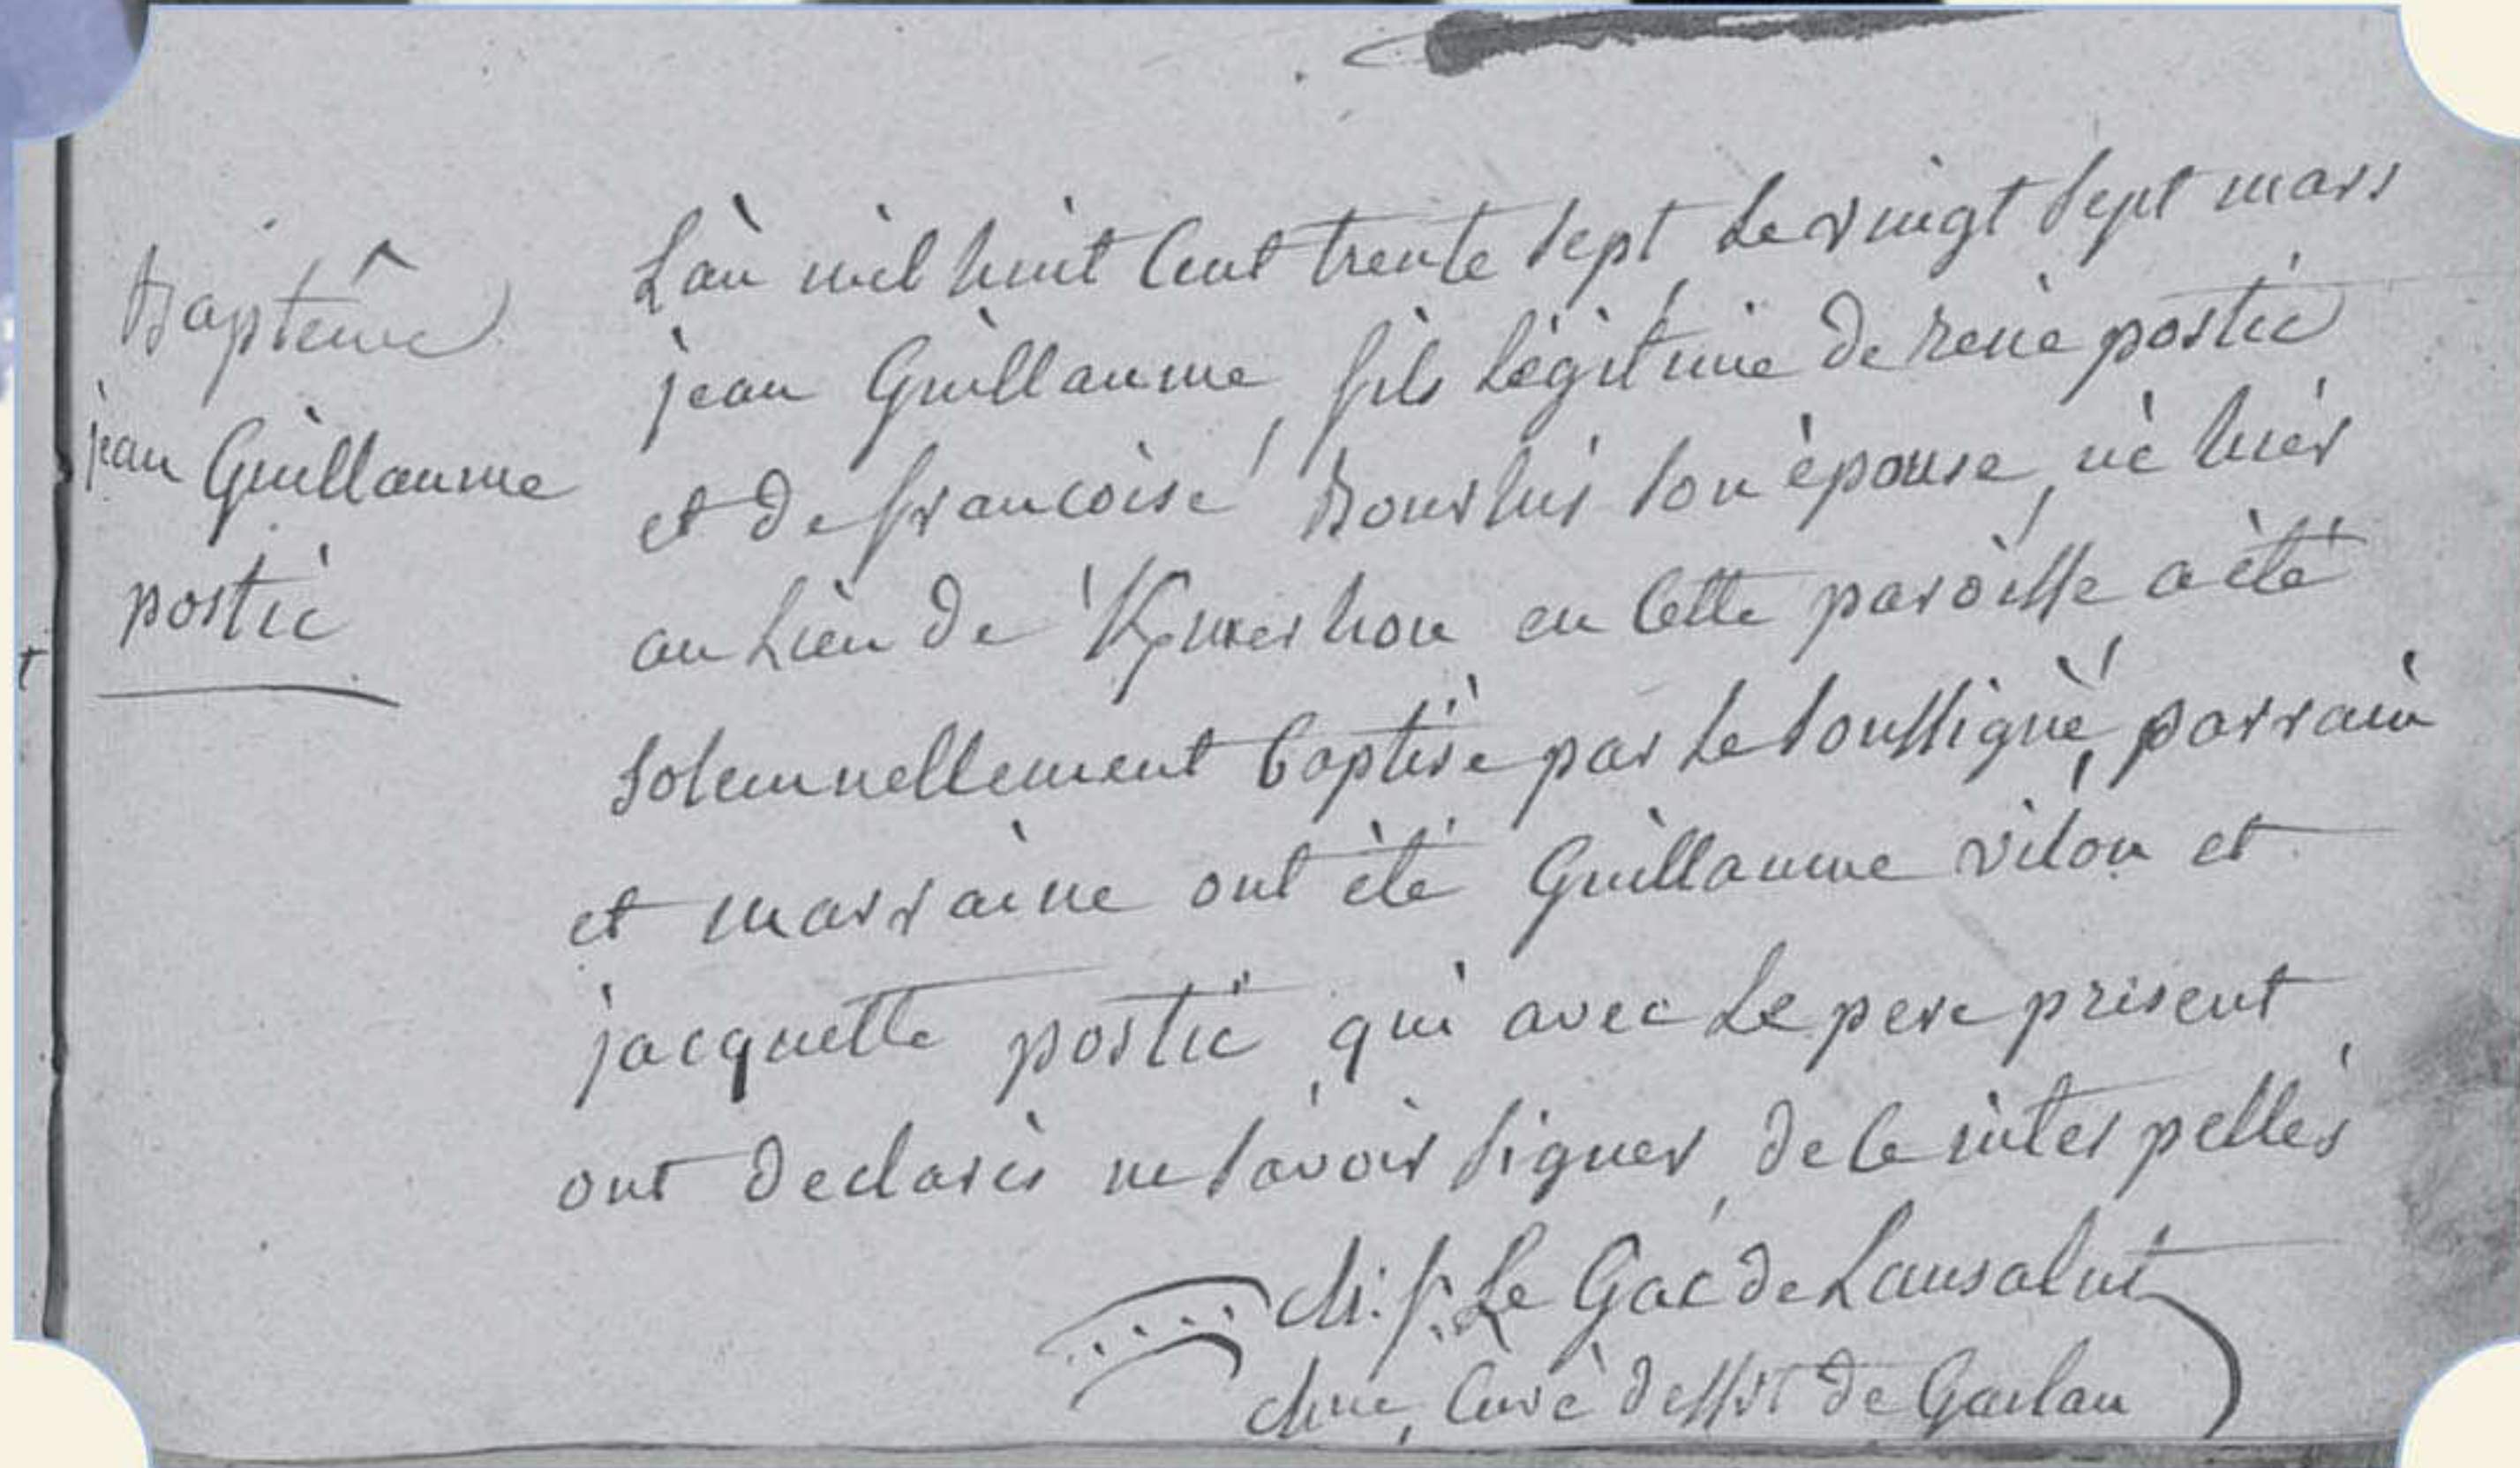 Baptême
jean Guillaume
postic
L'an mil huit Cent trente sept Le vingt sept mars
jean Guillaume, fils Légitime de rené postic
et de francoise Bourhis son épouse, né hier
au Lieu de en Cette paroisse, a été
Solemnellement baptisé par Le soussigné, parrain
et marraine ont été Guillaume vilou et
jacquette postic qui avec Le pere présent
ont declarés ne savoir signer, de ce interpellés
Le Gac de Lansalut
chne, Curé dessvt de Garlan